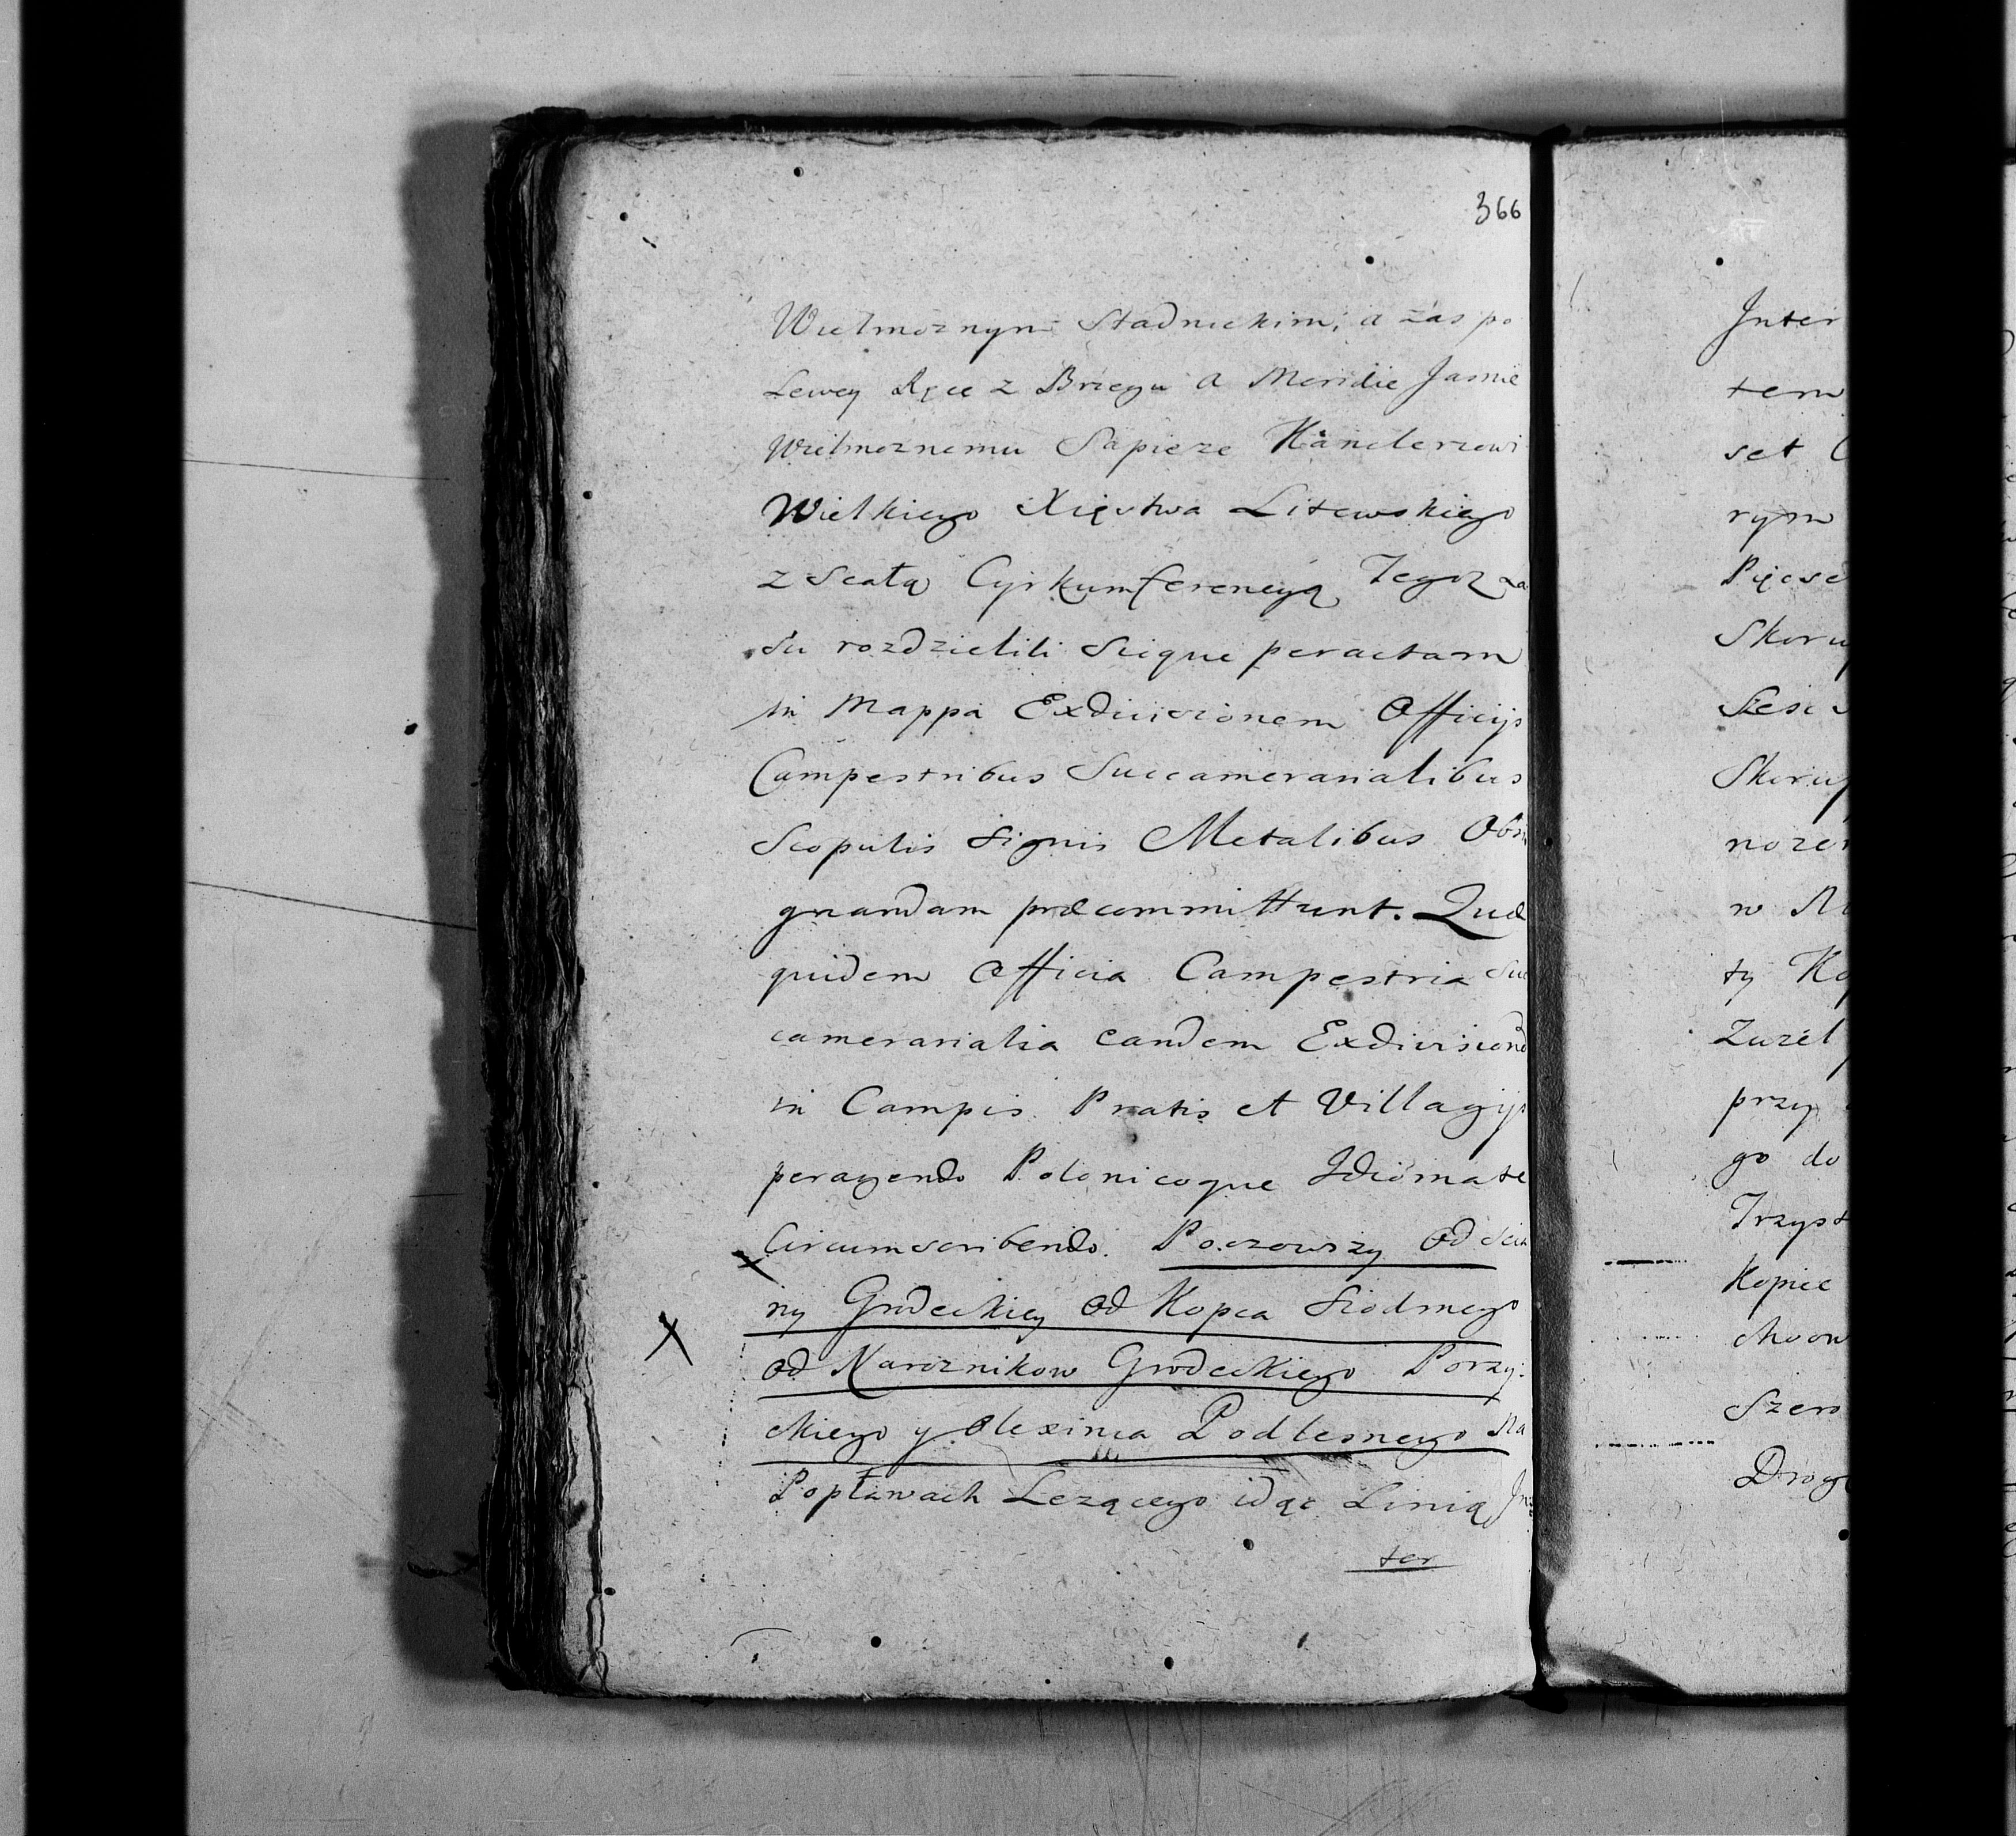 366
Wielmoznym Stadnickim, a zas po
Lewey Ręce z Brzegu a Meridie Jasnie
Wielmoznemu Sapieze Kanclerzowi
Wielkiego Xięstwa Litewskiego
z Scałą Cyrkumferencyą Tegoz La
su rozdzielili Sicque peractam
in Mappa Exdivisionem Officijs
Campestribus Succamerarialibus
Scopulis Signis Metalibus Obsi
gnandam præcommittunt. Quæ
quidem Officia Campestria Suc
camerarialia eandem Exdivisionē
in Campis Pratis et Villagijs
peragendo Polonicoque Idiomate
Circumscribendo. Poczowszy Od Scia
ny Grodeckiey Od Kopca Siodmego
od Naroznikow Grodeckiego Porzy:
ckiego y Olexinca Podlesnego Na
Popławach Lezącego idąc Linią In
ter
Inter
tem
set
rym
Pięcse
Skoru
Szesc
Skorup
nozen
w
ty Kop
Zuzel
przy
go do
Trzyst
Kopiec
Szero
Drog